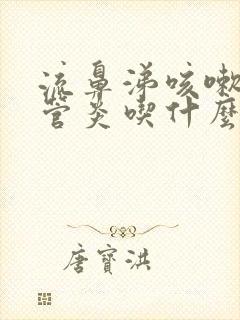 流鼻涕咳嗽
管炎喫什麼
唐寶洪